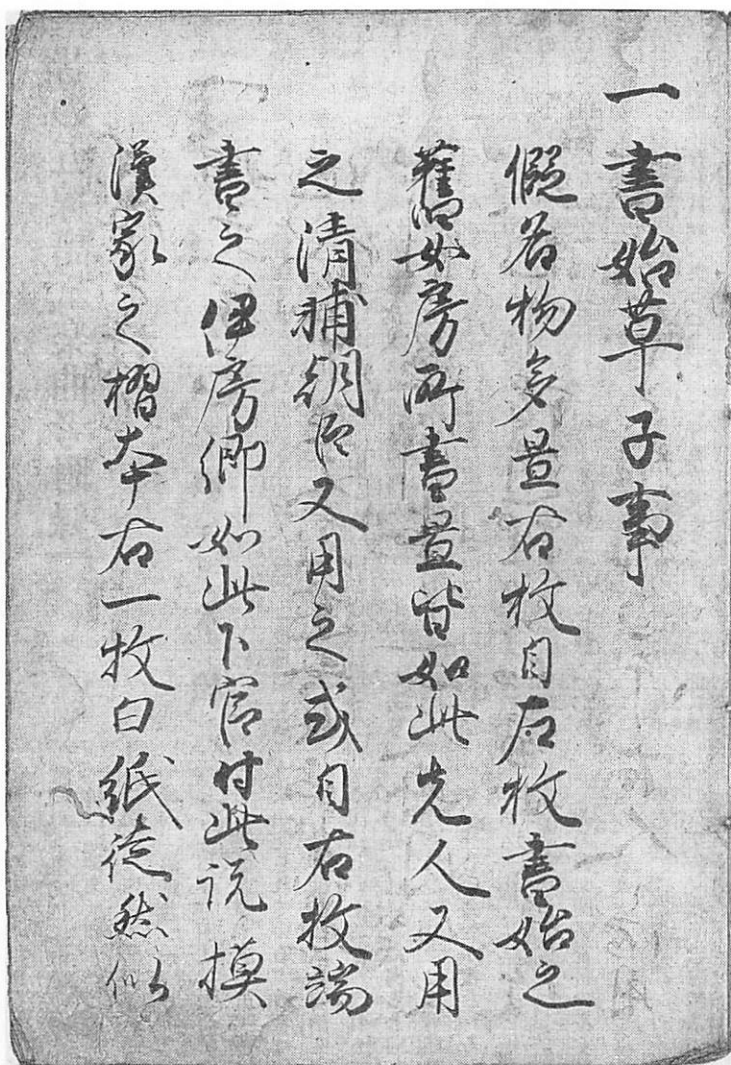 一書始草子事
假名物多置右枚自左枚書始之
舊女房所書置皆如此先人又用
之清輔朝臣又用之或自右枚端
書之伊房卿如此下官付此説模
漢家之摺本右一枚白紙徒然似